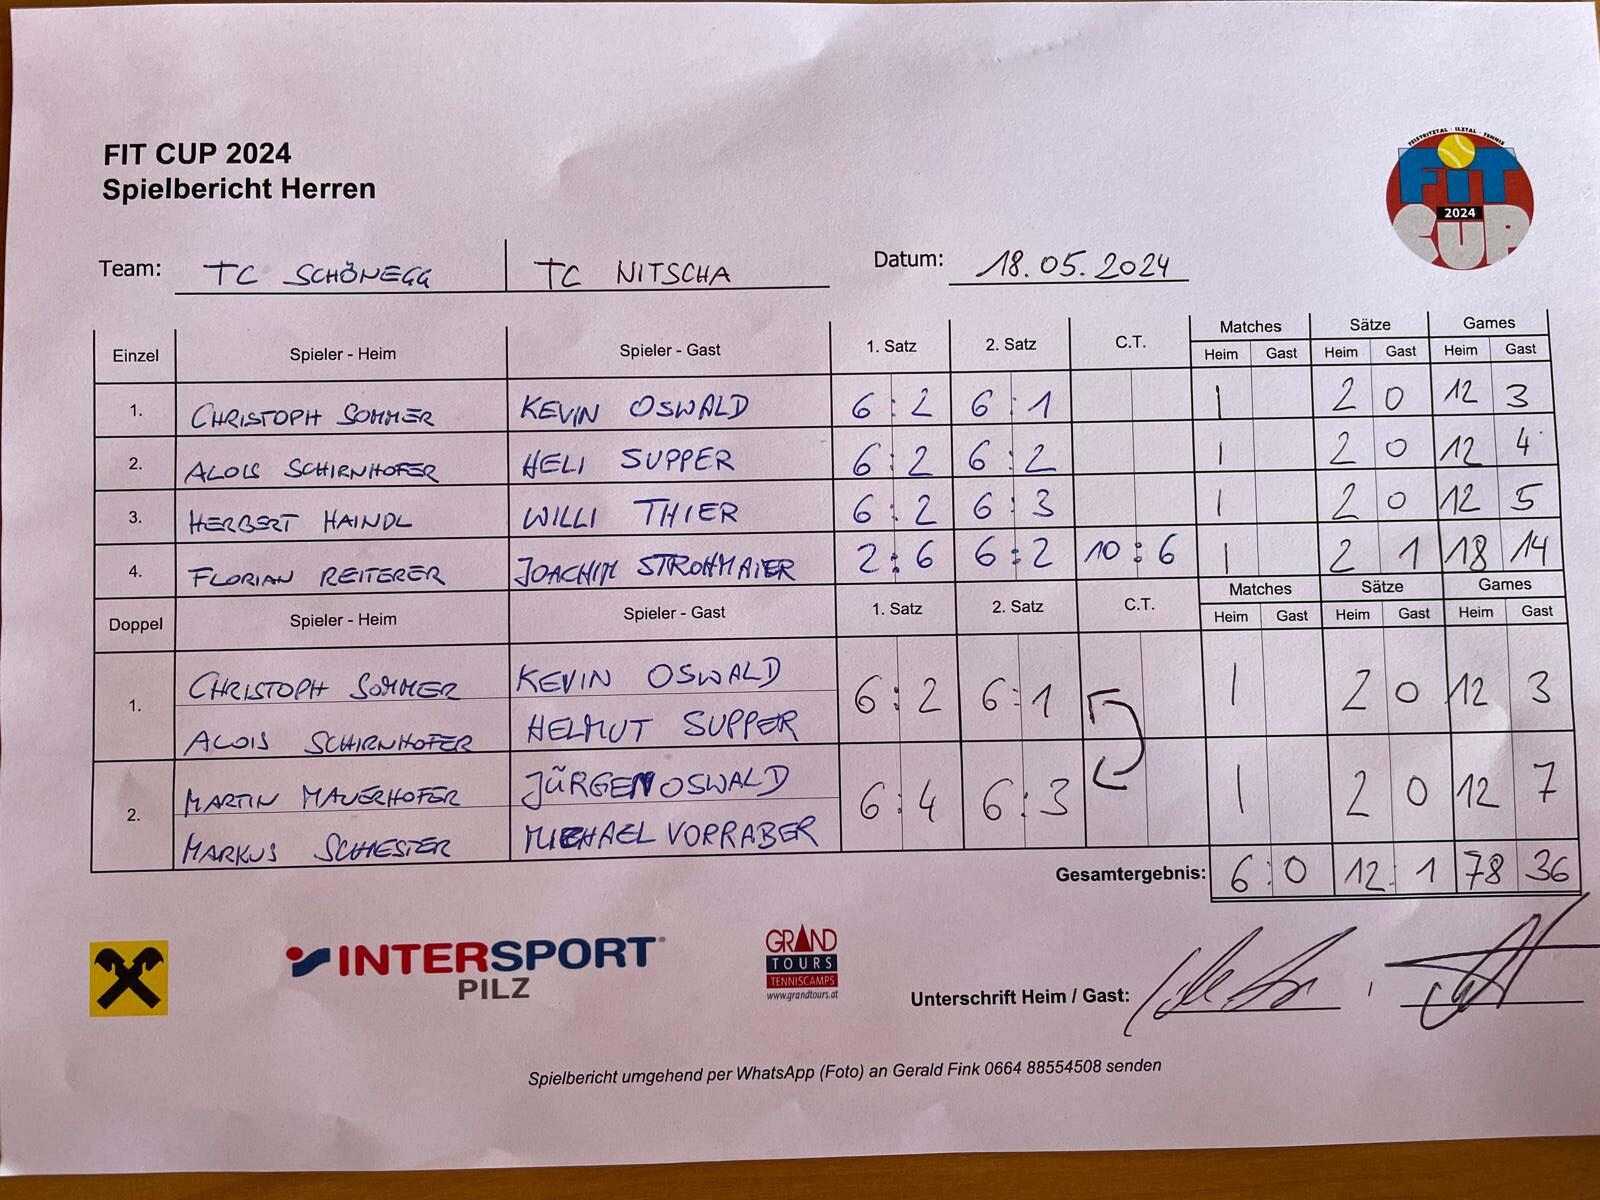 FIT CUP 2024
Spielbericht Herren
FEISTRITZTAL - ILZTAL - TENNIS
FiT
2024
CUP
Team: TC SCHÖNEGG TC NITSCHA Datum: 18.05.2024
Einzel Spieler - Heim Spieler - Gast 1. Satz 2. Satz C.T. Matches Sätze Games
Heim Gast Heim Gast Heim Gast
1. CHRISTOPH SOMMER KEVIN OSWALD 6 : 2 6 : 1 1 2 0 12 3
2. ALOIS SCHIRNHOFER HELI SUPPER 6 : 2 6 : 2 1 2 0 12 4
3. HERBERT HAINDL WILLI THIER 6 : 2 6 : 3 1 2 0 12 5
4. FLORIAN REITERER JOACHIM STROHMAIER 2 : 6 6 : 2 10 : 6 1 2 1 18 14
Doppel Spieler - Heim Spieler - Gast 1. Satz 2. Satz C.T. Matches Sätze Games
Heim Gast Heim Gast Heim Gast
1. CHRISTOPH SOMMER KEVIN OSWALD 6 : 2 6 : 1 1 2 0 12 3
ALOIS SCHIRNHOFER HELMUT SUPPER
2. MARTIN MAUERHOFER JÜRGEN OSWALD 6 : 4 6 : 3 1 2 0 12 7
MARKUS SCHIESTER MICHAEL VORRABER
Gesamtergebnis: 6 : 0 12 : 1 78 36
INTERSPORT
PILZ
GRAND
TOURS
TENNISCAMPS
www.grandtours.at
Unterschrift Heim / Gast:
Spielbericht umgehend per WhatsApp (Foto) an Gerald Fink 0664 88554508 senden